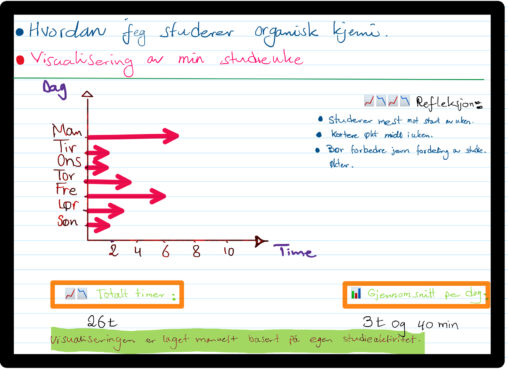 Hvordan jeg studerer organisk kjemi.
Visualisering av min studieuke
Dag
Refleksjon:
Studerer mest mot start av uken.
Kortere økt midt i uken.
Bør forbedre jevn fordeling av studie-
økter.
Man
Tir
Ons
Tor
Fre
Lør
Søn
2 4 6 8 10
Time
Totalt timer:
Gjennomsnitt per dag:
26t
3t og 40 min
Visualiseringen er laget manuelt basert på egen studieaktivitet.